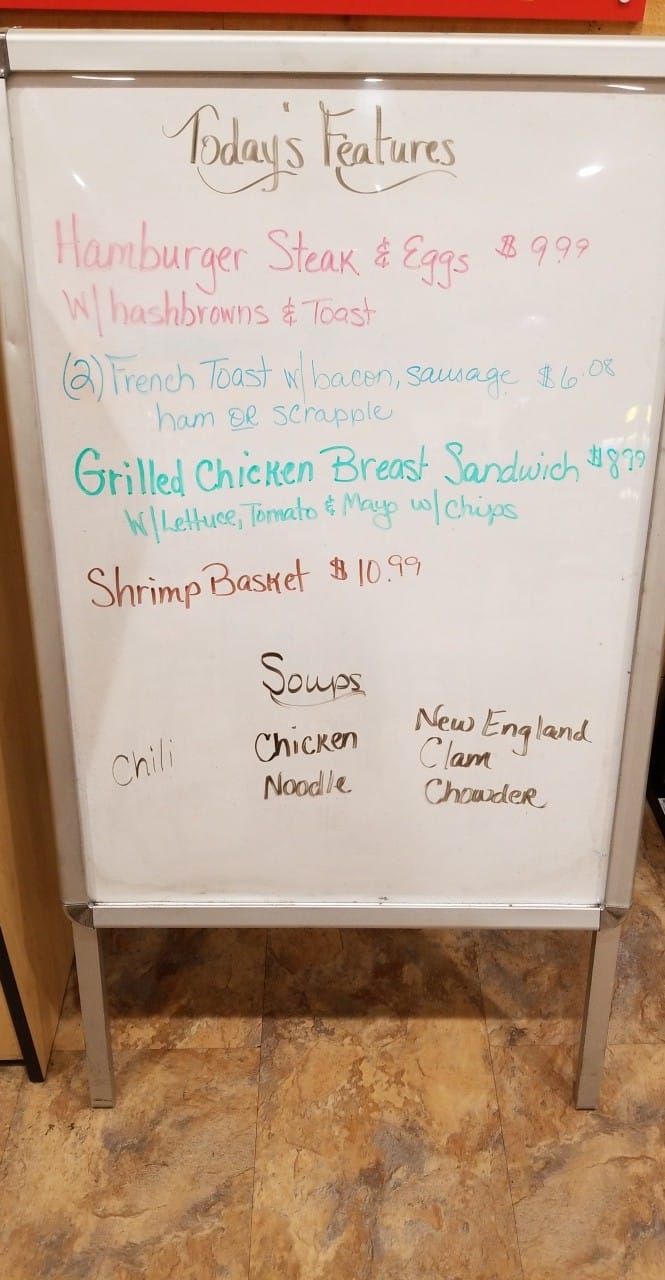 Today's Features
Hamburger Steak & Eggs $ 9.99
W/hashbrowns & Toast
(2) French Toast w/bacon, sausage $6.08
ham OR scrapple
Grilled Chicken Breast Sandwich $8.99
W/Lettuce, Tomato & Mayo w/ Chips
Shrimp Basket $ 10.99
Soups
Chili
Chicken
Noodle
New England
Clam
Chowder